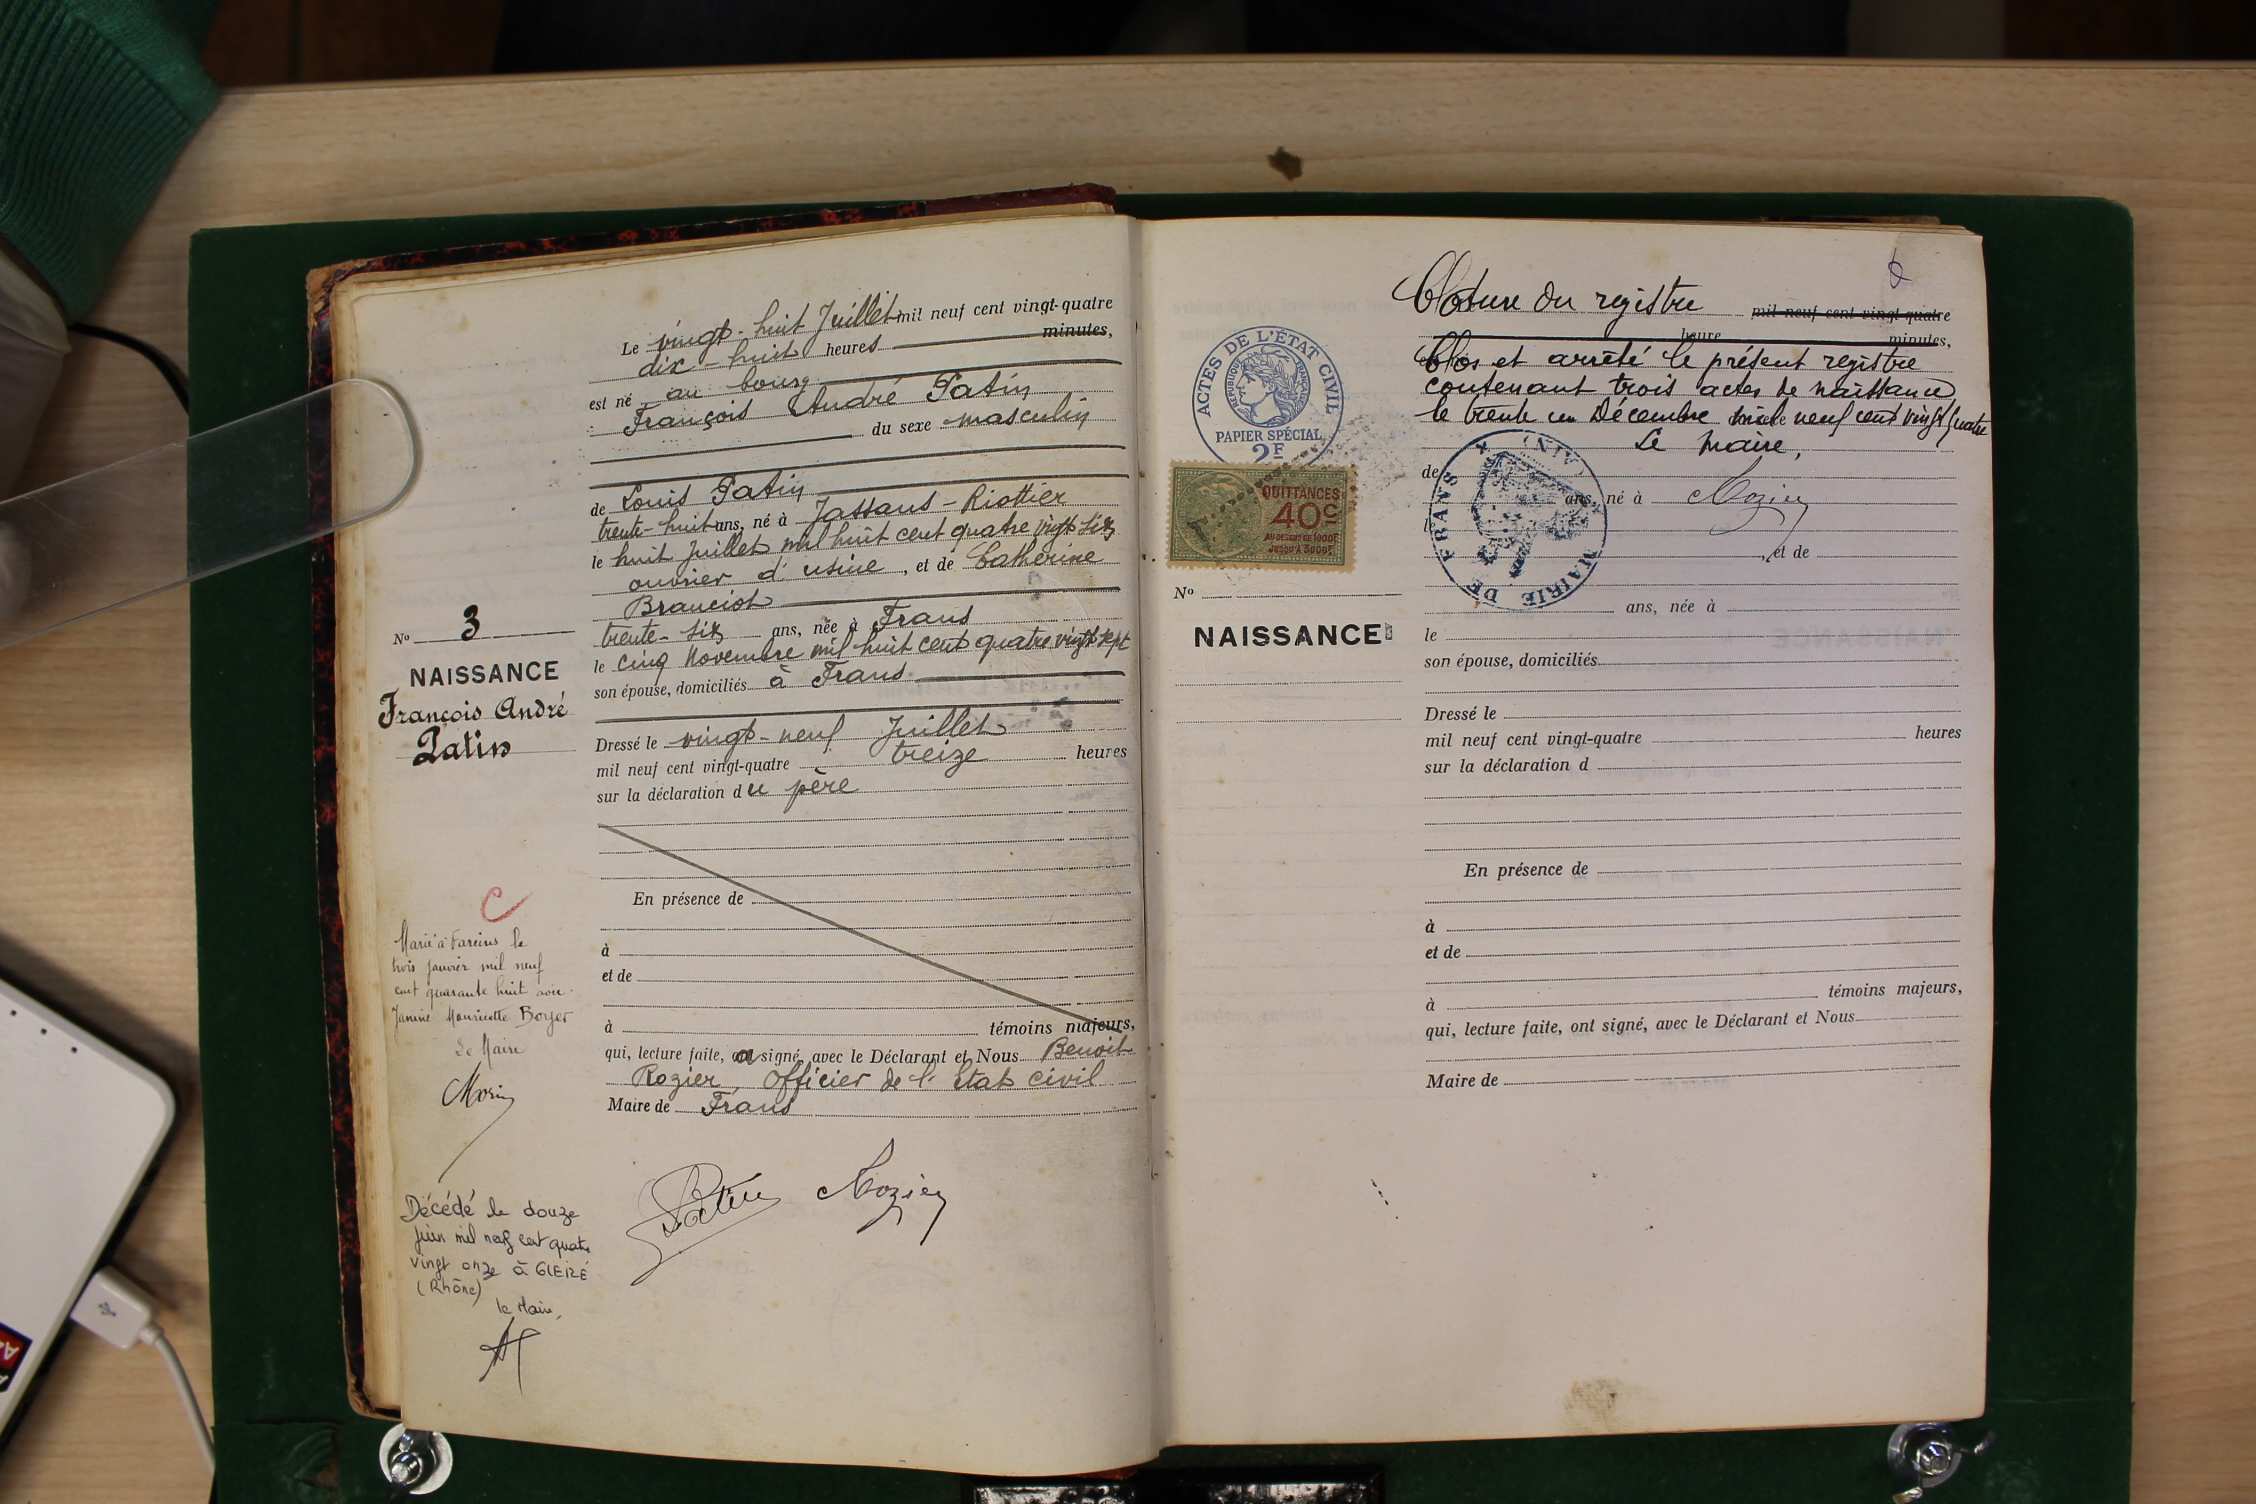 Le vingt-huit Juillet mil neuf cent vingt-quatre
dix-huit heures minutes,
est né au bourg
François André Patin
du sexe masculin
de Louis Patin
trente-huit ans, né à Jassans-Riottier
le huit Juillet mil huit cent quatre vingt six
ouvrier d'usine, et de Catherine
Branciot
trente-six ans, née à Frans
le cinq Novembre mil huit cent quatre vingt sept
son épouse, domiciliés à Frans.
Dressé le vingt-neuf Juillet
mil neuf cent vingt-quatre treize heures
sur la déclaration du père
En présence de
à
et de
à témoins majeurs,
qui, lecture faite, a signé, avec le Déclarant et Nous Benoit
Rozier, Officier de l'Etat civil
Maire de Frans
Patin Rozier
No 3
NAISSANCE
François André
Patin
C
Marié à Fareins le
trois janvier mil neuf
cent quarante huit avec
Janine Henriette Boyer
Le Maire
Décédé le douze
juin mil neuf cent quatre
vingt onze à GLEIZÉ
(Rhône)
le Maire,
ACTES DE L'ÉTAT CIVIL
RÉPUBLIQUE FRANÇAISE
PAPIER SPÉCIAL
2F
QUITTANCES
40c
AU-DESSUS DE 1000F
JUSQU'À 3000F
No
NAISSANCE
6
Clôture du registre mil neuf cent vingt-quatre
heure minutes,
Clos et arrêté le présent registre
contenant trois actes de naissance
le trente un Décembre mil neuf cent vingt quatre
Le Maire,
de
ans, né à Rozier
le
, et de
MAIRIE DE FRANS (AIN)
ans, née à
le
son épouse, domiciliés
Dressé le
mil neuf cent vingt-quatre heures
sur la déclaration d
En présence de
à
et de
à témoins majeurs,
qui, lecture faite, ont signé, avec le Déclarant et Nous
Maire de